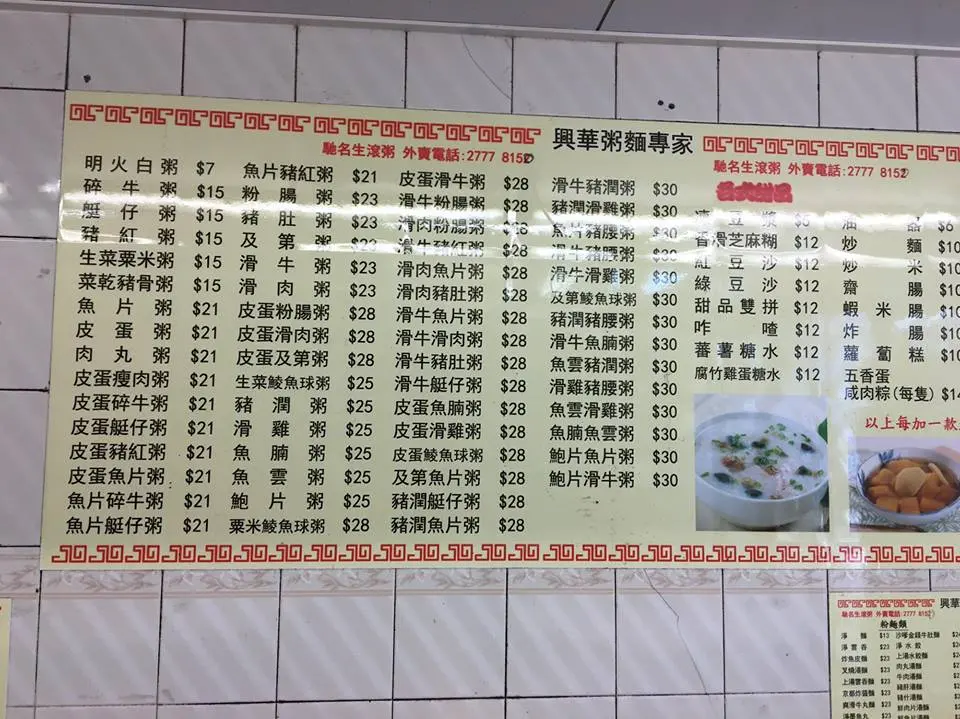 興華粥麵專家
馳名生滾粥 外賣電話:2777 8152
明火白粥 $7
碎牛粥 $15
艇仔粥 $15
豬紅粥 $15
生菜粟米粥 $15
菜乾豬骨粥 $15
魚片粥 $21
皮蛋粥 $21
肉丸粥 $21
皮蛋瘦肉粥 $21
皮蛋碎牛粥 $21
皮蛋艇仔粥 $21
皮蛋豬紅粥 $21
皮蛋魚片粥 $21
魚片碎牛粥 $21
魚片艇仔粥 $21
魚片豬紅粥 $21
粉腸粥 $23
豬肚粥 $23
及第粥 $23
滑牛粥 $23
滑肉粥 $23
皮蛋粉腸粥 $28
皮蛋滑肉粥 $28
皮蛋及第粥 $28
生菜鯪魚球粥 $25
豬潤粥 $25
滑雞粥 $25
魚腩粥 $25
魚雲粥 $25
鮑片粥 $25
粟米鯪魚球粥 $28
皮蛋滑牛粥 $28
滑牛粉腸粥 $28
滑肉粉腸粥 $28
滑牛豬紅粥 $28
滑肉魚片粥 $28
滑肉豬肚粥 $28
滑牛魚片粥 $28
滑牛滑肉粥 $28
滑牛豬肚粥 $28
滑牛艇仔粥 $28
皮蛋魚腩粥 $28
皮蛋滑雞粥 $28
皮蛋鯪魚球粥 $28
及第魚片粥 $28
豬潤艇仔粥 $28
豬潤魚片粥 $28
滑牛豬潤粥 $30
豬潤滑雞粥 $30
魚片豬腰粥 $30
滑牛豬腰粥 $30
滑牛滑雞粥 $30
及第鯪魚球粥 $30
豬潤豬腰粥 $30
滑牛魚腩粥 $30
魚雲豬潤粥 $30
滑雞豬腰粥 $30
魚雲滑雞粥 $30
魚腩魚雲粥 $30
鮑片魚片粥 $30
鮑片滑牛粥 $30
馳名生滾粥 外賣電話:2777 8152
豆漿 $5
香滑芝麻糊 $12
紅豆沙 $12
綠豆沙 $12
甜品雙拼 $12
咋喳 $12
蕃薯糖水 $12
腐竹雞蛋糖水 $12
油器 $6
炒麵 $10
炒米 $10
齋腸 $10
蝦米腸 $10
炸腸 $10
蘿蔔糕 $10
五香蛋
咸肉粽(每隻) $14
以上每加一款
興華
馳名生滾粥 外賣電話:2777 8152
粉麵類
淨麵 $13
淨雲吞 $23
炸魚皮麵 $23
叉燒湯麵 $23
上湯雲吞麵 $23
京都炸醬麵 $23
爽滑牛丸麵 $23
淨墨魚丸 $23
沙嗲金錢牛肚麵
淨水餃
上湯水餃麵
肉丸湯麵
牛肉湯麵
豬肝湯麵
豬什湯麵
鮮肉片湯麵